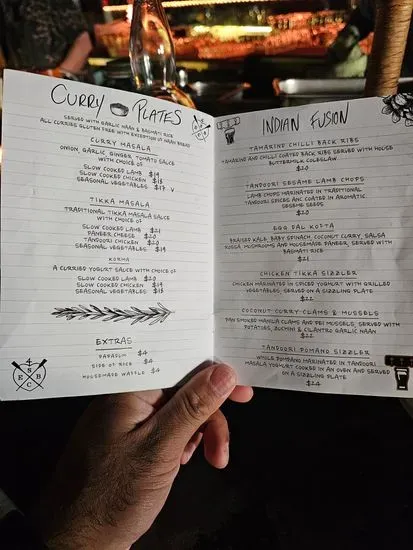 CURRY PLATES
SERVED WITH GARLIC NAAN & BASMATI RICE
ALL CURRIES GLUTEN FREE WITH EXCEPTION OF NAAN BREAD
CURRY MASALA
ONION, GARLIC, GINGER, TOMATO SAUCE
WITH CHOICE OF
SLOW COOKED LAMB $19
SLOW COOKED CHICKEN $18
SEASONAL VEGETABLES $17 V
TIKKA MASALA
TRADITIONAL TIKKA MASALA SAUCE
WITH CHOICE OF
SLOW COOKED LAMB $21
PANEER CHEESE $20
TANDOORI CHICKEN $20
SEASONAL VEGETABLES $19
KORMA
A CURRIED YOGURT SAUCE WITH CHOICE OF
SLOW COOKED LAMB $20
SLOW COOKED CHICKEN $19
SEASONAL VEGETABLES $18
EXTRAS
PAPADUM $4
SIDE OF RICE $4
HOUSEMADE WAFFLE $4
4
S C
E B
INDIAN FUSION
TAMARIND CHILLI BACK RIBS
TAMARIND AND CHILLI COATED BACK RIBS SERVED WITH HOUSE
BUTTERMILK COLESLAW
$20
TANDOORI SESAME LAMB CHOPS
LAMB CHOPS MARINATED IN TRADITIONAL
TANDOORI SPICES AND COATED IN AROMATIC
SESAME SEEDS
$20
EGG DAL KOTTA
BRAISED KALE, BABY SPINACH, COCONUT CURRY, SALSA
ROSSA, MUSHROOMS AND HOUSEMADE PANEER, SERVED WITH
BASMATI RICE
$21
CHICKEN TIKKA SIZZLER
CHICKEN MARINATED IN SPICED YOGHURT WITH GRILLED
VEGETABLES, SERVED ON A SIZZLING PLATE
$22
COCONUT CURRY CLAMS & MUSSELS
PAN SMOKED MANILLA CLAMS AND PEI MUSSELS, SERVED WITH
POTATOES, ZUCHINI & CILANTRO GARLIC NAAN
$22
TANDOORI POMANO SIZZLER
WHOLE POMPANO MARINATED IN TANDOORI
MASALA YOGHURT COOKED IN AN OVEN AND SERVED
ON A SIZZLING PLATE
$24